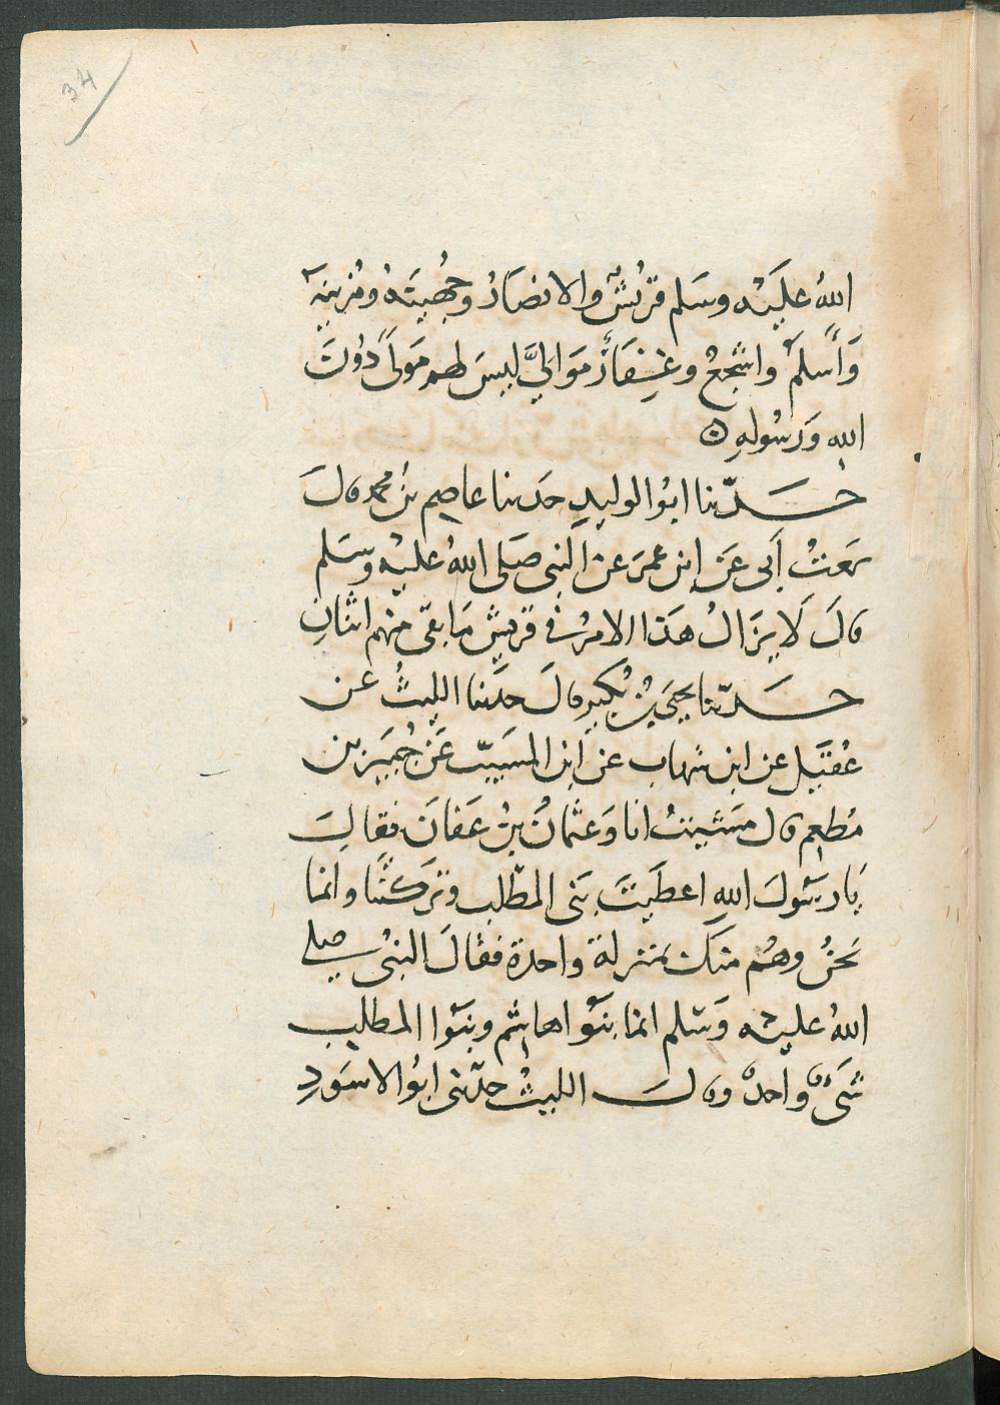 34
اللهُ عليَه وسَلم قريشٌ والانصَارُ وجُهيَنةُ ومُزينةَ
وَأسلمُ واشجعُ وغِفَارُ مَوَاليَّ ليسَ لهم مَولىً دُونَ
اللهِ وَرَسُولهِ ه
حَدّثنا ابوُالوليدِ حَدثنا عاصِم بنُ محمد قال
سَمعتُ أبى عَن ابنِ عمرَ عن النبى صَلى اللهُ عليْه وسَلم
قالَ لَا يزَالُ هذا الامرُ فى قريشٍ مَا بقى منهم اثنانِ
حَدّثنا يحيَى بنُ بُكيرٍ قالَ حدَّثنا الليثُ عن
عُقيَلٍ عن ابنِ شهابٍ عن ابنِ المسَيبّ عَن جُبيَرِ بن
مُطعِمٍ قال مشَيتُ انا وَعثمانُ بنُ عَفانَ فقالَ
يَا رسَولَ اللهِ اعطَيتَ بَنى المطّلب وتركتَنا وانما
نَحنُ وهُم منكَ بمنزلة واحدة فقالَ النبىُ صلى
اللهُ عليْه وَسَلم انما بنوُا هاشم وبنَوا المطلبِ
شَىءٌ واحدٌ وقالَ الليثُ حدّثنى ابوُالاسَودِ